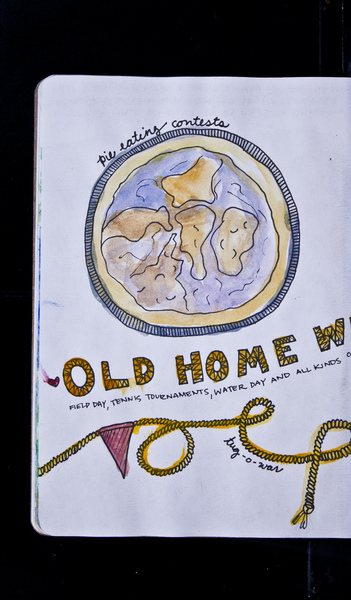 pie eating contests
OLD HOME W
FIELD DAY, TENNIS TOURNAMENTS, WATER DAY AND ALL KINDS O
tug-o-war